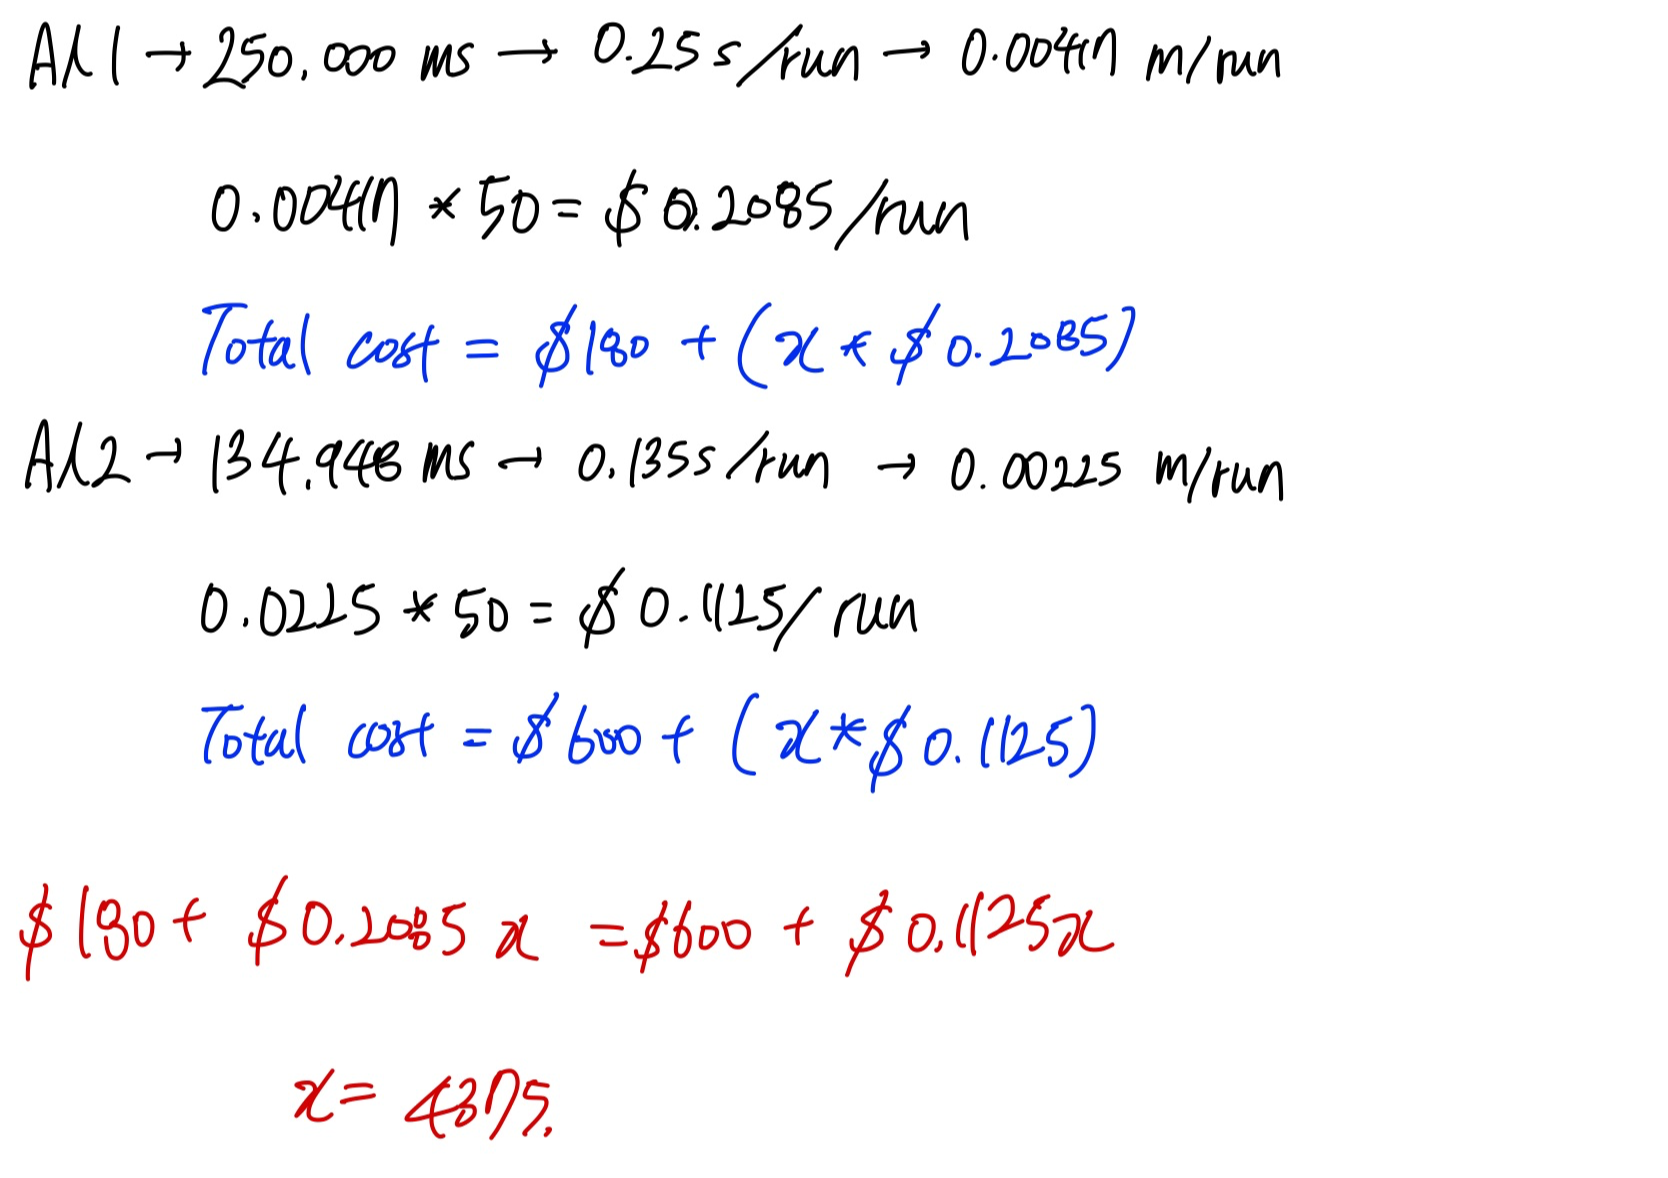 Al1 → 250.000 ms → 0.25 s/run → 0.00417 m/run
0.00417 * 50 = $ 0.2085/run
Total cost = $180 + (x * $ 0.2085)
Al2 → 134.948 ms → 0.135s/run → 0.00225 m/run
0.0225 * 50 = $ 0.1125/run
Total cost = $600 + (x * $ 0.1125)
$180 + $0.2085 x = $600 + $0.1125x
x = 4375.